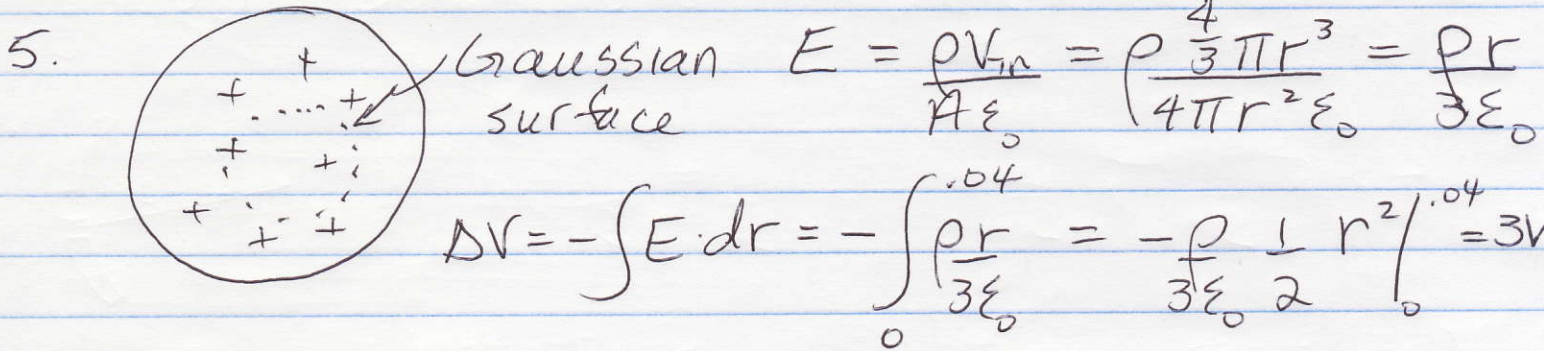 5. Gaussian surface E = ρV_in / Aε₀ = ρ 4/3 πr³ / 4πr²ε₀ = ρr / 3ε₀
ΔV = -∫E·dr = -∫₀^.04 ρr / 3ε₀ = -ρ / 3ε₀ 1/2 r² |₀^.04 = 3V